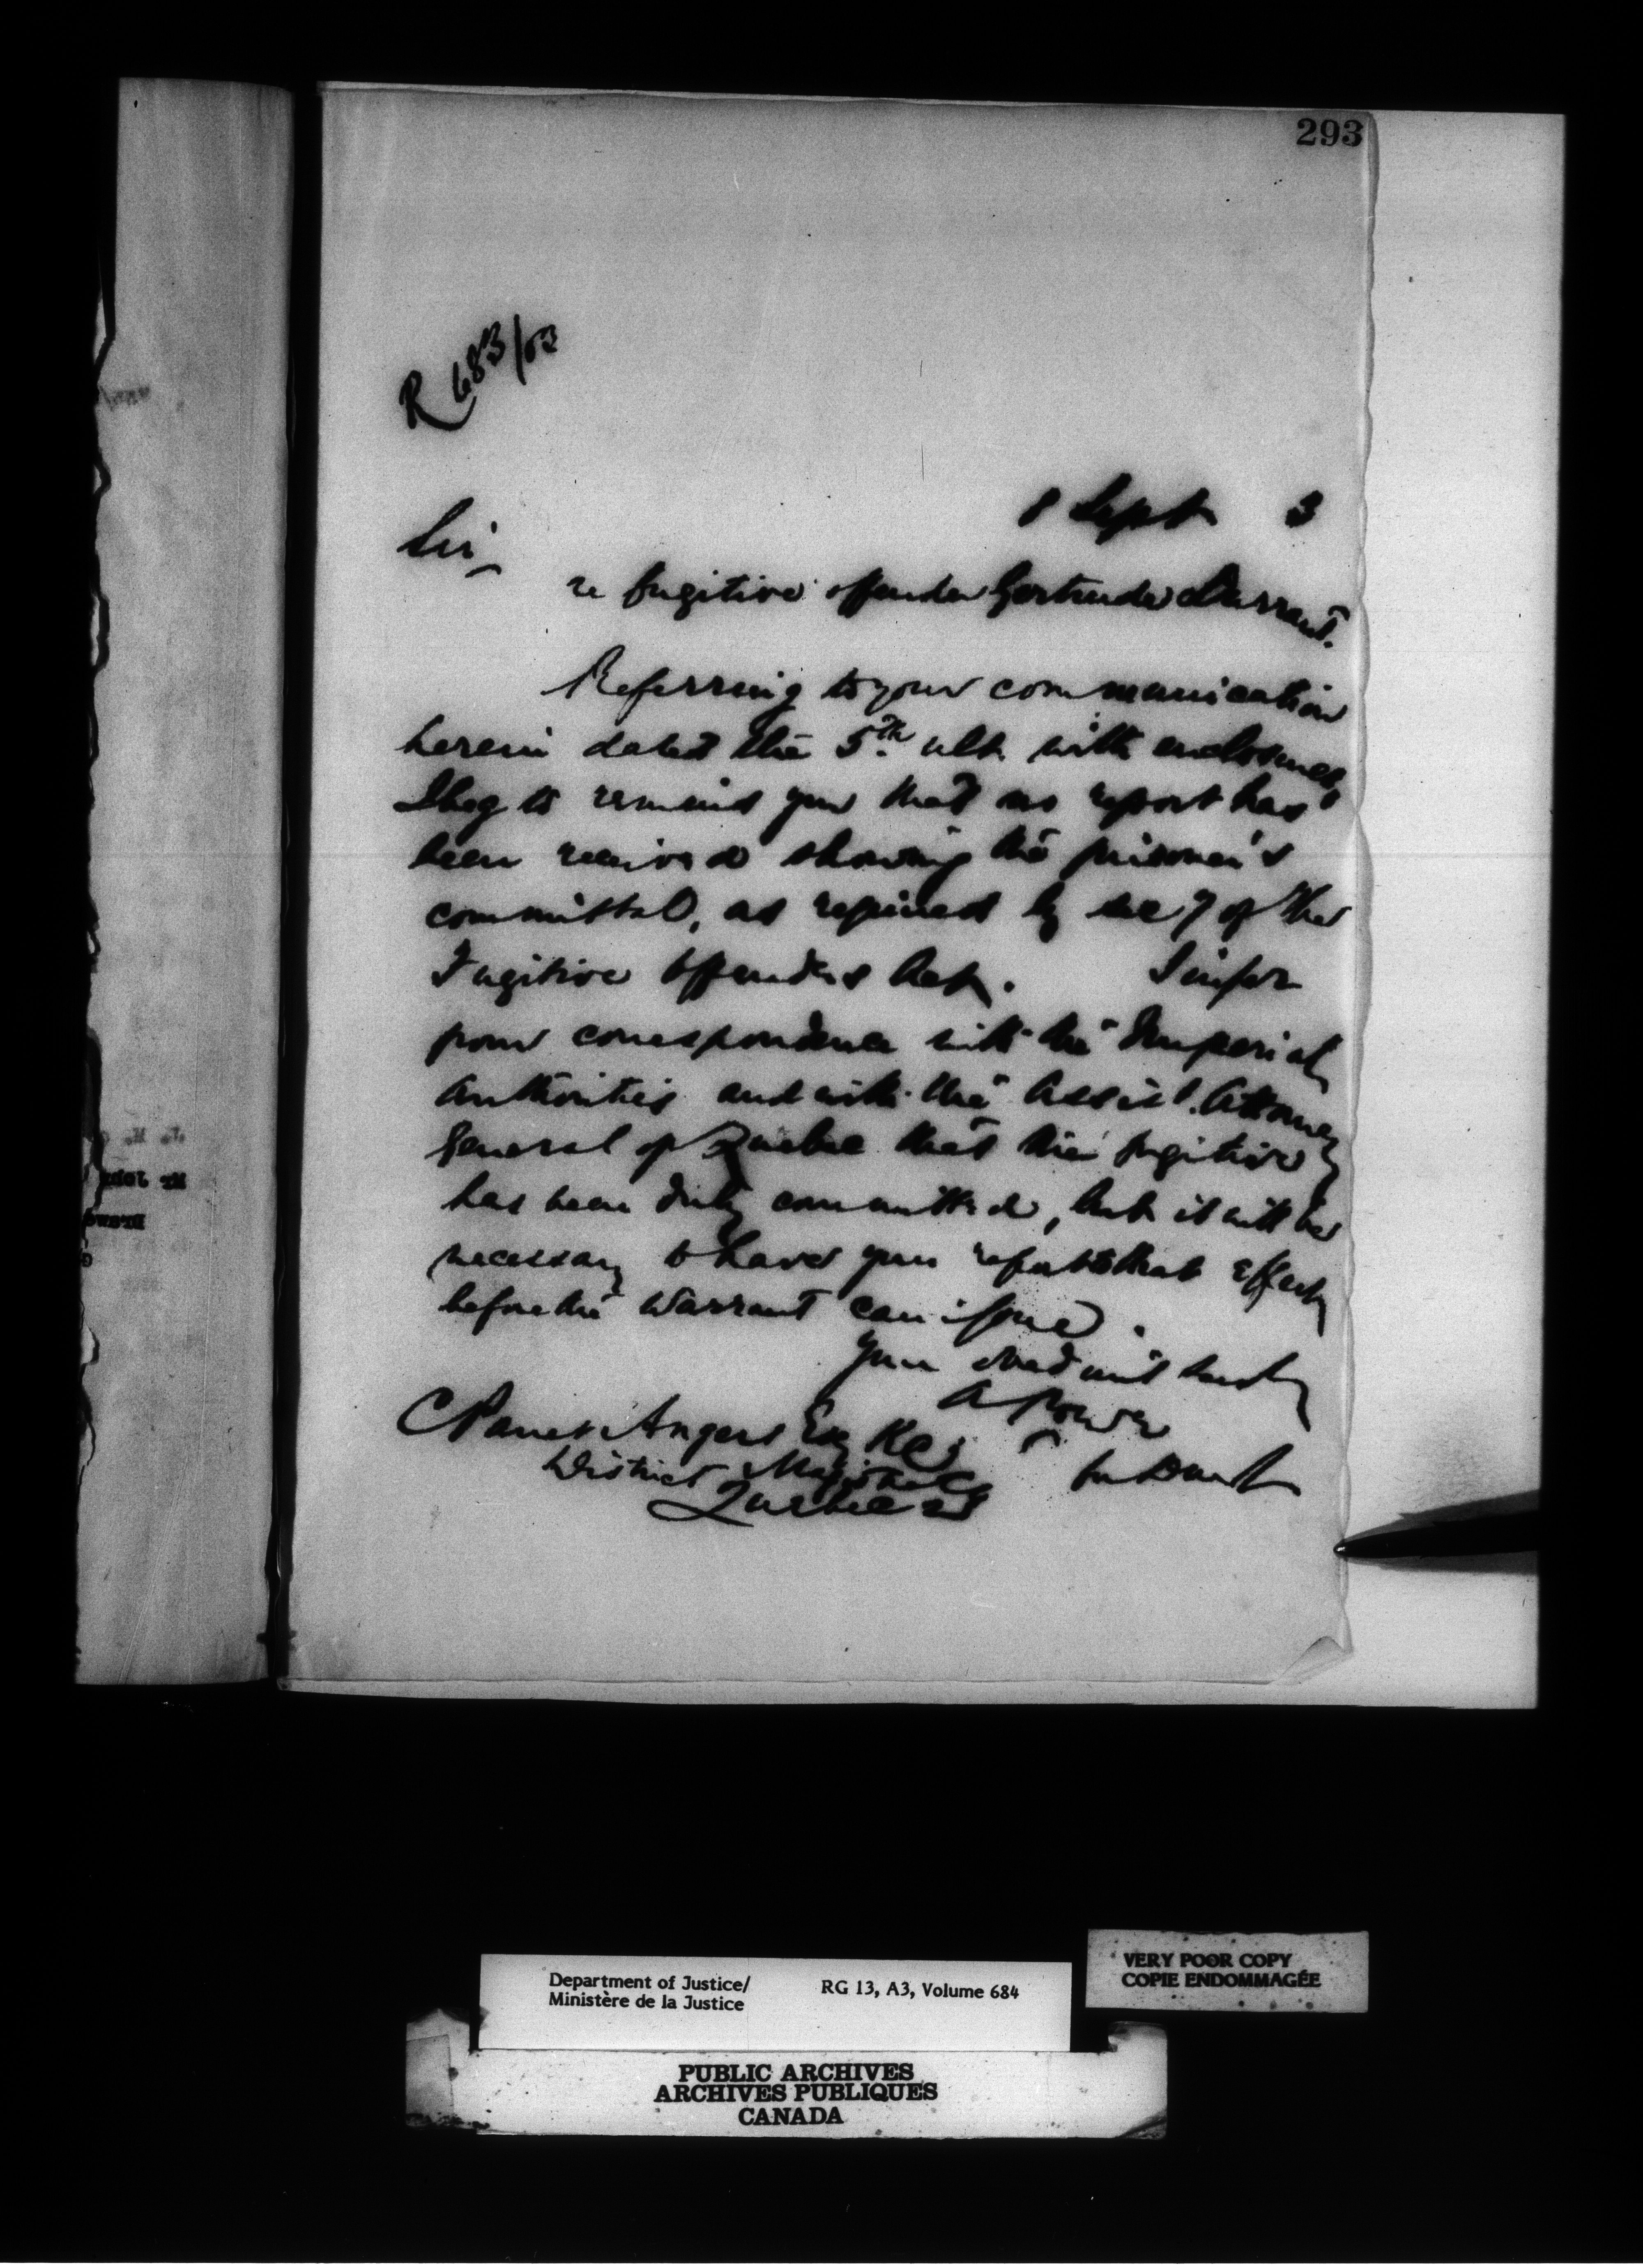 293
R 683/03
Sept 3
Sir
re fugitive offender Gertrude Durrant.
Referring to your communication
herein dated the 5th ult. with enclosures
I beg to remind you that no report has
been received showing the prisoner's
committal, as required by sec 7 of the
Fugitive Offenders Act. I infer
from correspondence with the Imperial
Authorities and with the Assist. Attorney
General of Quebec that the fugitive
has been duly committed, but it will be
necessary to have your report to that effect
before the warrant can issue.
Your obedient servt
A Power
C Panet Angers Esq KC
District Magistrate
Quebec
Department of Justice/
Ministère de la Justice
RG 13, A3, Volume 684
VERY POOR COPY
COPIE ENDOMMAGÉE
PUBLIC ARCHIVES
ARCHIVES PUBLIQUES
CANADA